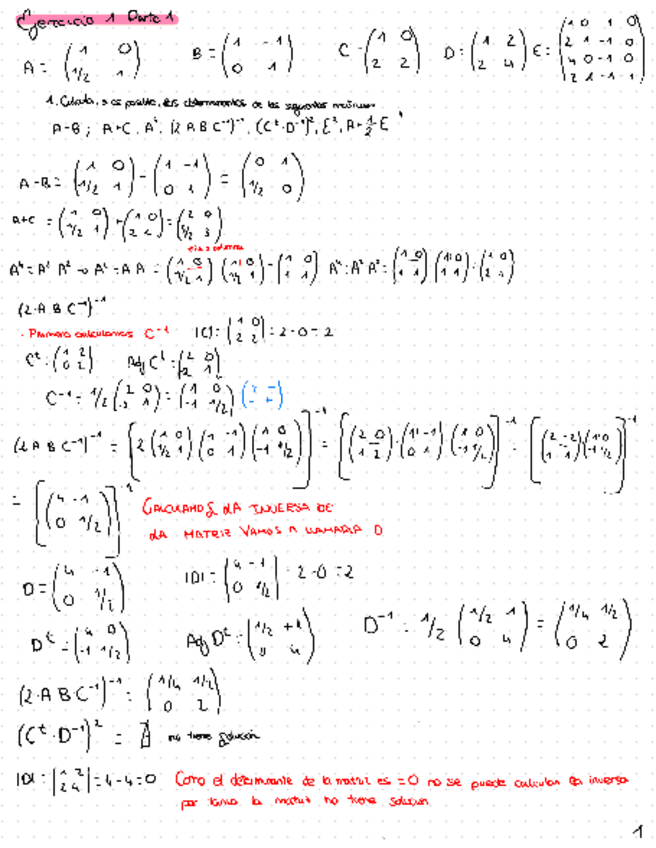 Ejercicio 1 Parte 1
A = (1 0; 1/2 1) B = (1 -1; 0 1) C = (1 0; 2 2) D = (1 2; 2 4) E = (1 0 1 0; 2 1 -1 0; 4 0 -1 0; 2 1 -1 1)
1. Calcula, si es posible, los determinantes de las siguientes matrices
A-B; A+C, A⁴, (2ABC⁻¹)⁻¹, (Cᵗ·D⁻¹)², E², A+½E
A-B = (1 0; 1/2 1) - (1 -1; 0 1) = (0 1; 1/2 0)
A+C = (1 0; 1/2 1) + (1 0; 2 2) = (2 0; 5/2 3)
A⁴ = A² A² → A² = A·A = (1 0; 1/2 1) (1 0; 1/2 1) = (1 0; 1 1) A⁴ = A² A² = (1 0; 1 1) (1 0; 1 1) = (1 0; 2 1)
(2·A B C⁻¹)⁻¹
· Primero calculamos C⁻¹ |C| = |1 0; 2 2| = 2-0 = 2
Cᵗ = (1 2; 0 2) Adj Cᵗ = (2 0; -2 1)
C⁻¹ = 1/2 (2 0; -2 1) = (1 0; -1 1/2) (+ -; - +)
(2ABC⁻¹)⁻¹ = [2 (1 0; 1/2 1) (1 -1; 0 1) (1 0; -1 1/2)]⁻¹ = [(2 0; 1 2) · (1 -1; 0 1) (1 0; -1 1/2)]⁻¹ = [(2 -2; 1 -1) (1 0; -1 1/2)]⁻¹
= [(4 -1; 0 1/2)]⁻¹ CALCULAMOS LA INVERSA DE
LA MATRIZ VAMOS A LLAMARLA D
D = (4 -1; 0 1/2) |D| = |4 -1; 0 1/2| = 2-0 = 2
Dᵗ = (4 0; -1 1/2) Adj Dᵗ = (1/2 +1; 0 4) D⁻¹ = 1/2 (1/2 1; 0 4) = (1/4 1/2; 0 2)
(2·A B C⁻¹)⁻¹ = (1/4 1/2; 0 2)
(Cᵗ·D⁻¹)² = ∄ no tiene solución
|D| = |1 2; 2 4| = 4-4 = 0 Como el determinante de la matriz es = 0 no se puede calcular la inversa
por tanto la matriz no tiene solucion
1